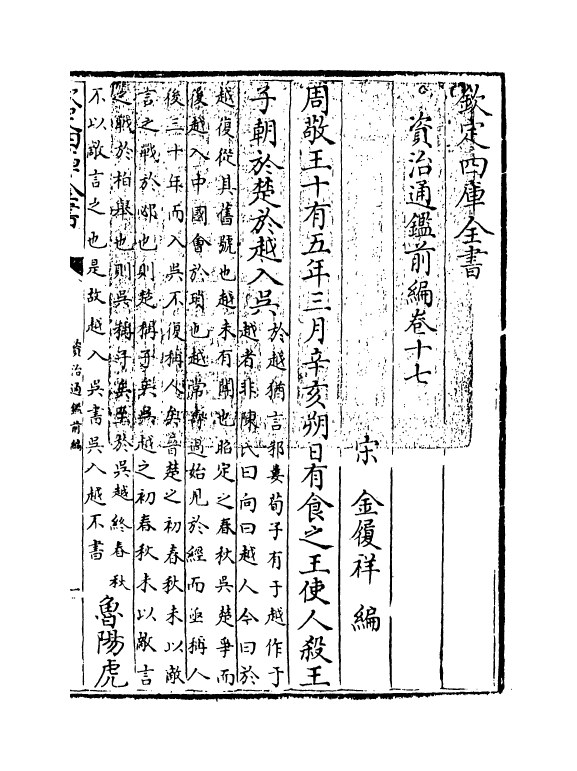 欽定四庫全書
資治通鑑前編卷十七
宋 金履祥 編
周敬王十有五年三月辛亥朔日有食之王使人殺王
子朝於楚於越入吳
於越猶言邾婁荀子有于越作于
越者非陳氏曰向曰越人今曰於
越復從其舊號也越未有聞也昭定之春秋吳楚爭而
後越入中國會於瑣也越常壽過始見於經而亟稱人
後三十年而入吳不復稱人矣晉楚之初春秋未以敵
言之戰於邲也則楚稱子矣吳越之初春秋未以敵言
之戰於柏舉也則吳稱子矣至於吳越終春秋
不以敵言之也是故越入吳書吳入越不書
魯陽虎
欽定四庫全書
資治通鑑前編
一